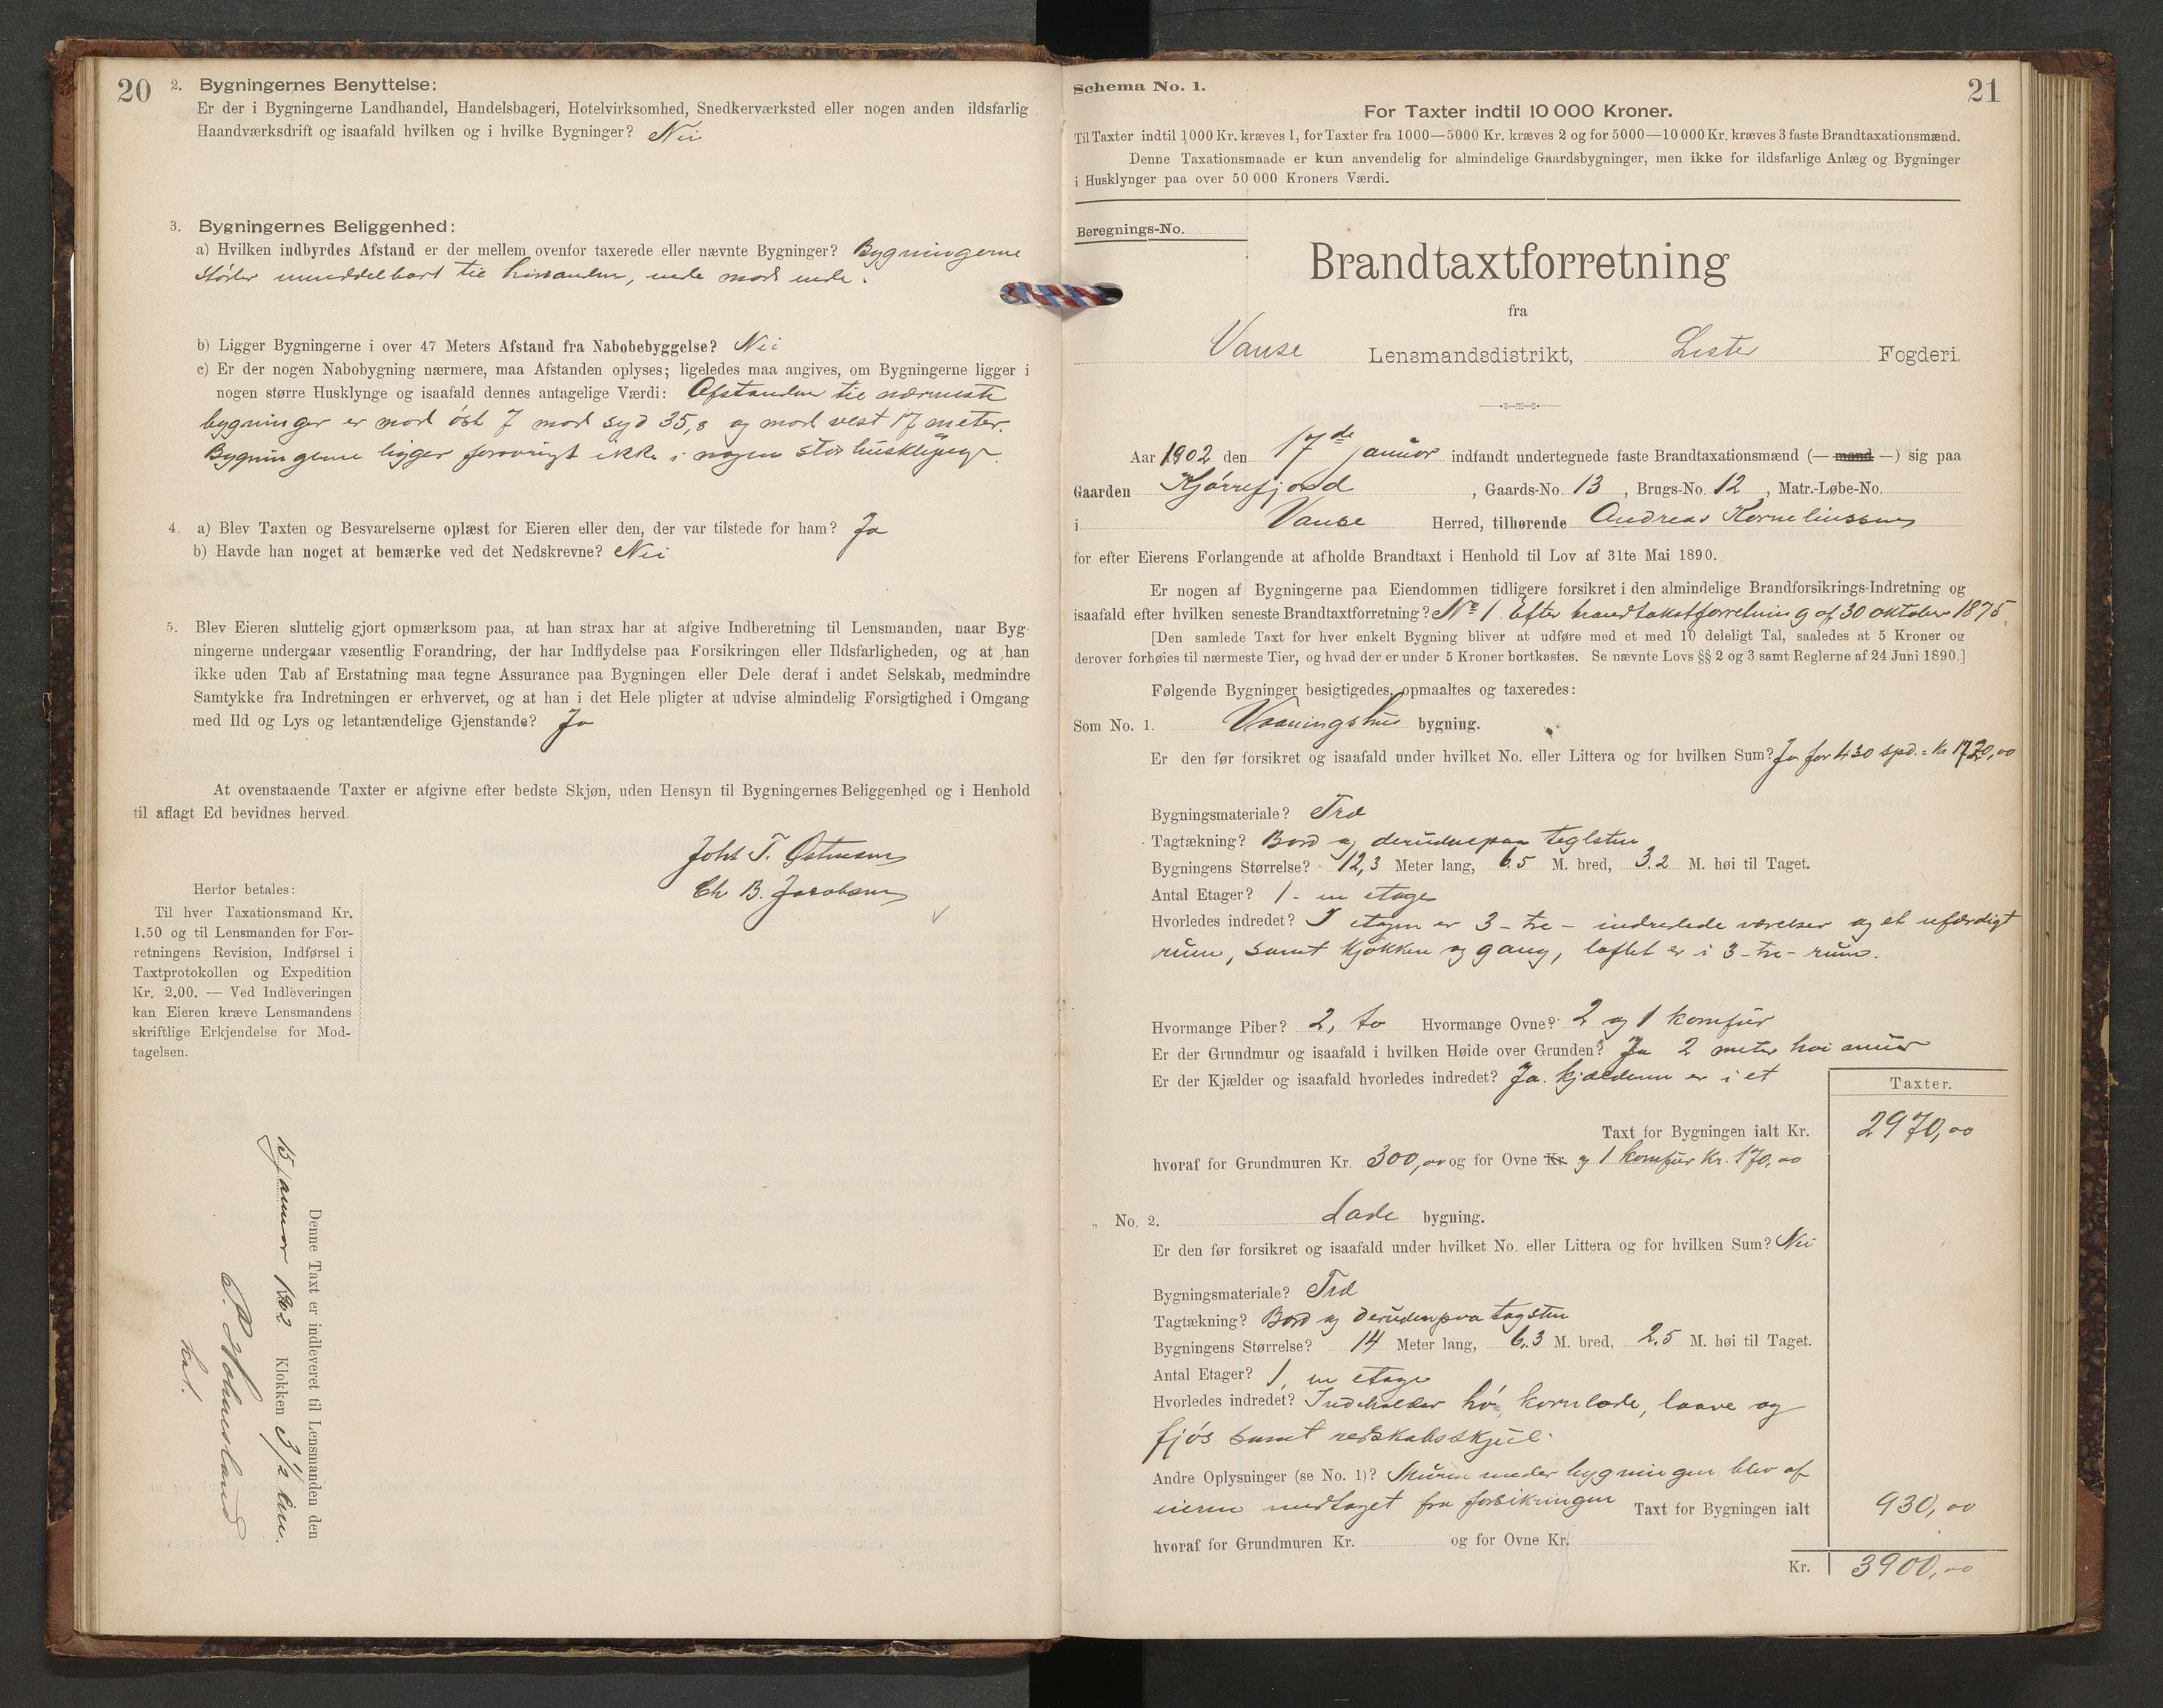 20
2. Bygningernes Benyttelse:
Er der i Bygningerne Landhandel, Handelsbageri, Hotelvirksomhed, Snedkerværksted eller nogen anden ildsfarlig
Haandværksdrift og isaafald hvilken og i hvilke Bygninger? Nei
3. Bygningernes Beliggenhed:
a) Hvilken indbyrdes Afstand er der mellem ovenfor taxerede eller nævnte Bygninger? Bygningerne
støder umiddelbart til hinanden, ende mod ende.
b) Ligger Bygningerne i over 47 Meters Afstand fra Nabobebyggelse? Nei
c) Er der nogen Nabobygning nærmere, maa Afstanden oplyses; ligeledes maa angives, om Bygningerne ligger i
nogen større Husklynge og isaafald dennes antagelige Værdi: Afstanden til nærmeste
bygninger er mod øst 7 mod syd 35,8 og mod vest 17 meter.
Bygningerne ligger forøvrigt ikke i nogen stor husklynge
4. a) Blev Taxten og Besvarelserne oplæst for Eieren eller den, der var tilstede for ham? Ja
b) Havde han noget at bemærke ved det Nedskrevne? Nei
5. Blev Eieren sluttelig gjort opmærksom paa, at han strax har at afgive Indberetning til Lensmanden, naar Byg-
ningerne undergaar væsentlig Forandring, der har Indflydelse paa Forsikringen eller Ildsfarligheden, og at han
ikke uden Tab af Erstatning maa tegne Assurance paa Bygningen eller Dele deraf i andet Selskab, medmindre
Samtykke fra Indretningen er erhvervet, og at han i det Hele pligter at udvise almindelig Forsigtighed i Omgang
med Ild og Lys og letantændelige Gjenstande? Ja
At ovenstaaende Taxter er afgivne efter bedste Skjøn, uden Hensyn til Bygningernes Beliggenhed og i Henhold
til aflagt Ed bevidnes herved.
Johs T. Østensen
Ch B. Jacobsen
Herfor betales:
Til hver Taxationsmand Kr.
1.50 og til Lensmanden for For-
retningens Revision, Indførsel i
Taxtprotokollen og Expedition
Kr. 2.00. — Ved Indleveringen
kan Eieren kræve Lensmandens
skriftlige Erkjendelse for Mod-
tagelsen.
Denne Taxt er indleveret til Lensmanden den
15 januar 1902 Klokken 3 1/2 em.
21
Schema No. 1.
For Taxter indtil 10 000 Kroner.
Til Taxter indtil 1000 Kr. kræves 1, for Taxter fra 1000—5000 Kr. kræves 2 og for 5000—10 000 Kr. kræves 3 faste Brandtaxationsmænd.
Denne Taxationsmaade er kun anvendelig for almindelige Gaardsbygninger, men ikke for ildsfarlige Anlæg og Bygninger
i Husklynger paa over 50 000 Kroners Værdi.
Beregnings-No.
Brandtaxtforretning
fra
Vanse Lensmandsdistrikt, Lister Fogderi.
Aar 1902 den 17de januar indfandt undertegnede faste Brandtaxationsmænd (— mand —) sig paa
Gaarden Kjørrefjord, Gaards-No. 13, Brugs-No. 12, Matr.-Løbe-No.
i Vanse Herred, tilhørende Andreas Korneliussen
for efter Eierens Forlangende at afholde Brandtaxt i Henhold til Lov af 31te Mai 1890.
Er nogen af Bygningerne paa Eiendommen tidligere forsikret i den almindelige Brandforsikrings-Indretning og
isaafald efter hvilken seneste Brandtaxtforretning? No 1. Efter brandtakstforretning af 30 oktober 1875
[Den samlede Taxt for hver enkelt Bygning bliver at udføre med et med 10 deleligt Tal, saaledes at 5 Kroner og
derover forhøies til nærmeste Tier, og hvad der er under 5 Kroner bortkastes. Se nævnte Lovs §§ 2 og 3 samt Reglerne af 24 Juni 1890.]
Følgende Bygninger besigtigedes, opmaaltes og taxeredes:
Som No. 1. Vaaningshus bygning.
Er den før forsikret og isaafald under hvilket No. eller Littera og for hvilken Sum? Ja for 430 spd. = kr 1720,00
Bygningsmateriale? Træ
Tagtækning? Bord og derudenpaa teglsten
Bygningens Størrelse? 12,3 Meter lang, 6.5 M. bred, 3.2 M. høi til Taget.
Antal Etager? 1 - en etage
Hvorledes indredet? I etagen er 3 - tre - indredede værelser og et ufærdigt
rum, samt kjøkken og gang, loftet er i 3 - tre - rum.
Hvormange Piber? 2, to Hvormange Ovne? 2 og 1 komfur
Er der Grundmur og isaafald i hvilken Høide over Grunden? Ja 2 meter høi
Er der Kjælder og isaafald hvorledes indredet? Ja. kjælderen er i et
Taxter.
Taxt for Bygningen ialt Kr. 2970,00
hvoraf for Grundmuren Kr. 300,00 og for Ovne Kr. og 1 komfur Kr. 170,00
„ No. 2. Lade bygning.
Er den før forsikret og isaafald under hvilket No. eller Littera og for hvilken Sum? Nei
Bygningsmateriale? Træ
Tagtækning? Bord og derudenpaa tagsten
Bygningens Størrelse? 14 Meter lang, 6.3 M. bred, 2.5 M. høi til Taget.
Antal Etager? 1, en etage
Hvorledes indredet? Indeholder hø, kornlade, laave og
fjøs samt redskabsskjul.
Andre Oplysninger (se No. 1)? Muren under bygningen blev af
eieren undtaget fra forsikringen Taxt for Bygningen ialt 930,00
hvoraf for Grundmuren Kr. og for Ovne Kr.
Kr. 3900,00